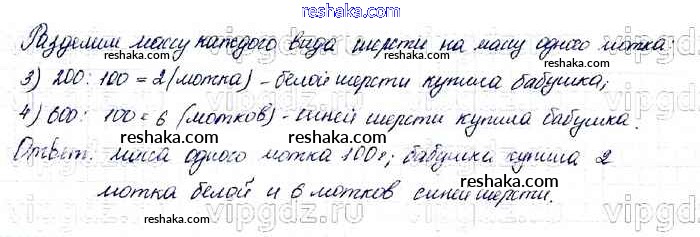 reshaka.com
Разделим массу каждого вида шерсти на массу одного мотка:
reshaka.com
3) 200 : 100 = 2 (мотка) - белой шерсти купила бабушка;
reshaka.com
4) 600 : 100 = 6 (мотков) - синей шерсти купила бабушка.
reshaka.com reshaka.com
Ответ: масса одного мотка 100 г; бабушка купила 2
мотка белой и 6 мотков синей шерсти.
reshaka.com
reshaka.com
vipgdz.ru vipgdz.ru vipgdz.ru